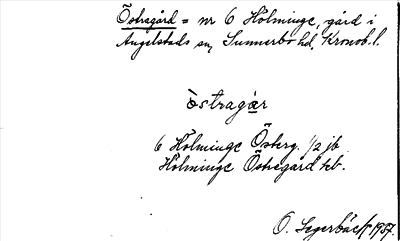 Östragård = nr 6 Hölminge, gård i
Angelstads sn, Sunnerbo hd, Kronob. l.
östragár
6 Hölminge Österg. 1/2 jb
Hölminge Östregård teb.
O. Segerbäck 1937.